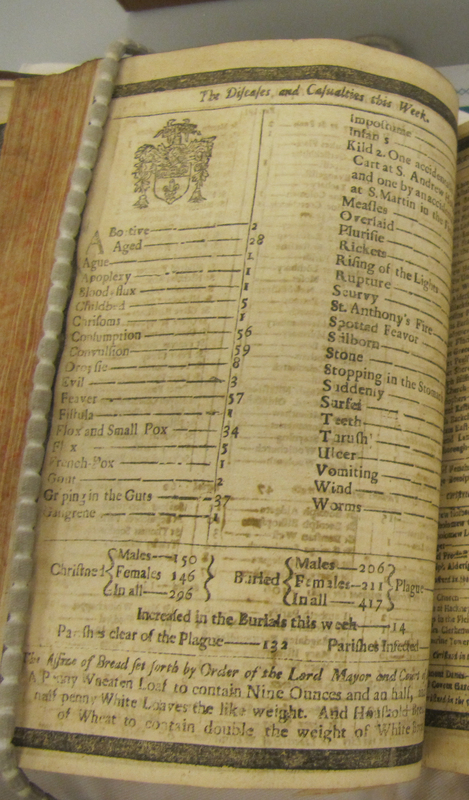 The Diseases and Casualties this Week.
Abortive 2
Aged 28
Ague 1
Apoplexy 1
Blood-flux 1
Childbed 5
Chrisoms 1
Consumption 56
Convulsion 59
Dropsie 8
Evil 3
Feaver 57
Fistula 1
Flox and Small Pox 34
Flux 5
French-Pox 1
Gout 2
Griping in the Guts 37
Gangrene 1
Impostume
Infants
Kild 2. One accident
Cart at S. Andrew
and one by an accid
at S. Martin in the
Measles
Overlaid
Plurisie
Rickets
Rising of the Lights
Rupture
Scurvy
St. Anthony's Fire
Spotted Feavor
Stilborn
Stone
Stopping in the Stom
Suddenly
Surfet
Teeth
Thrush
Ulcer
Vomiting
Wind
Worms
Christned { Males 150 Females 146 In all 296 }
Buried { Males 206 Females 211 In all 417 } Plague
Increased in the Burials this week 14
Parishes clear of the Plague 132 Parishes Infected
The Assize of Bread set forth by Order of the Lord Mayor and Court
A Penny Wheaten Loaf to contain Nine Ounces and an half,
half-penny White Loaves the like weight. And Houshold
of Wheat to contain double the weight of White